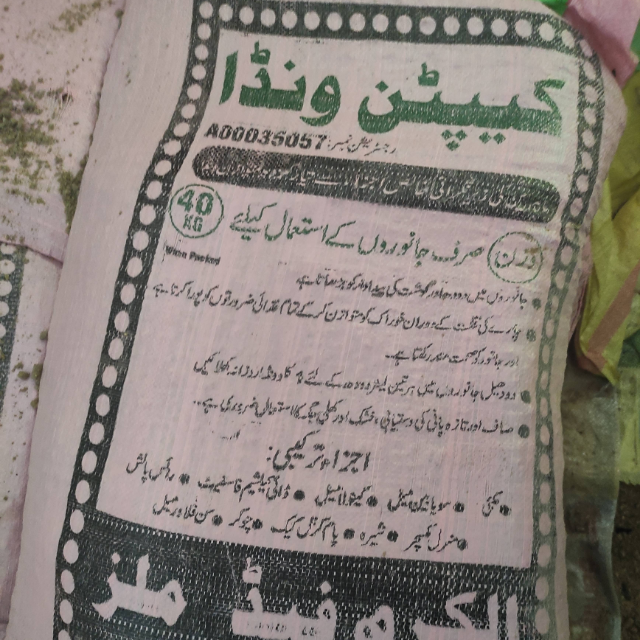 کیپٹن ونڈا
رجسٹریشن نمبر: A00035057
40 KG
صرف جانوروں کے استعمال کیلئے
When Packed
جانوروں میں دودھ اور گوشت کی پیداوار کو بڑھاتا ہے۔
چارے کی قلت کے دوران خوراک کو متوازن کر کے تمام غذائی ضرورتوں کو پورا کرتا ہے
اور جانور کو صحت مند رکھتا ہے۔
دودھیل جانوروں میں ہر تین لیٹر دودھ کے لئے کلو ونڈا روزانہ کھلائیں
صاف اور تازہ پانی کی دستیابی، خشک اور کھلی جگہ کا استعمال ضروری ہے۔
اجزاء ترکیبی:
مکئی • سویابین میل • کینولا میل • ڈائی کیلشیم فاسفیٹ • رائس پالش
منرل مکسچر • شیرہ • پام کرنل کیک • چوکر • سن فلاور میل
فیڈ ملز